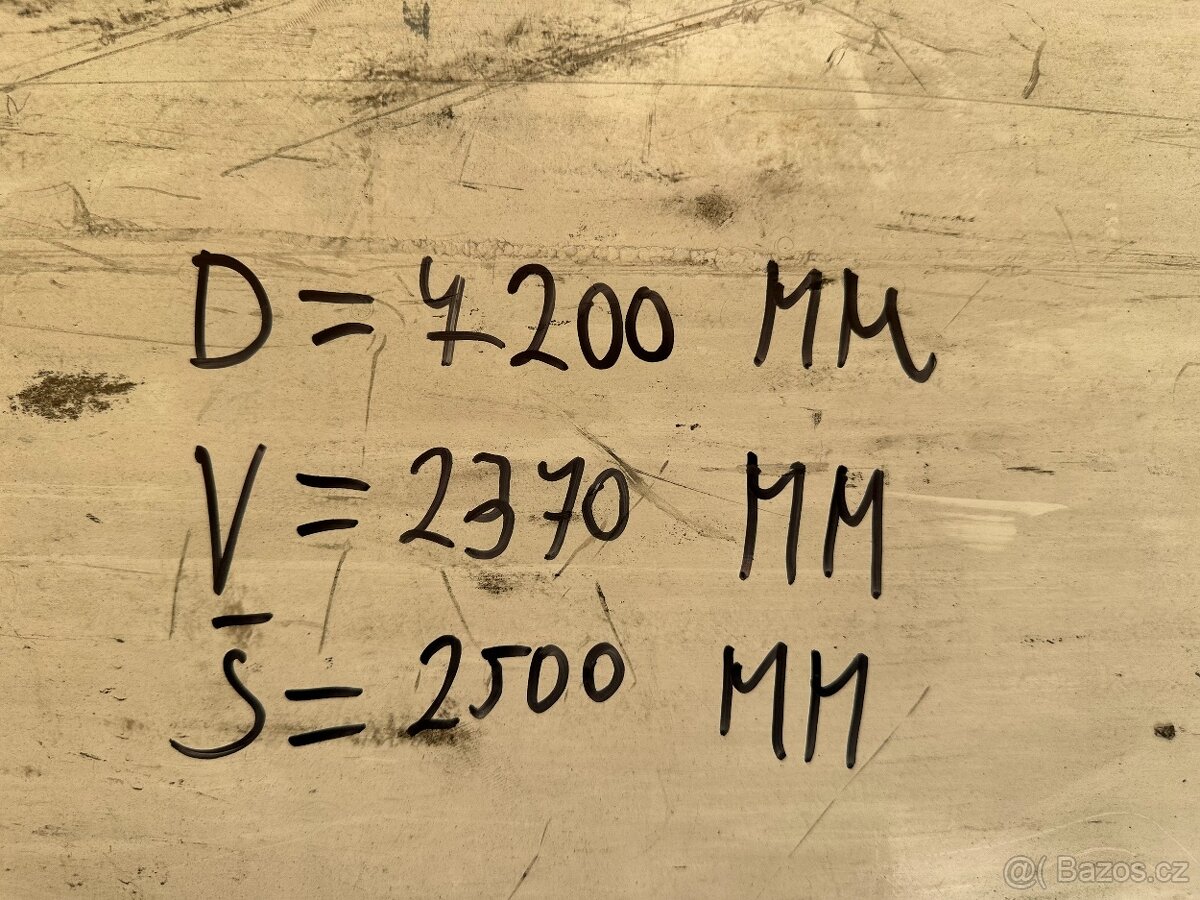 D = 7200 MM
V = 2370 MM
Š = 2500 MM
@( Bazos.cz